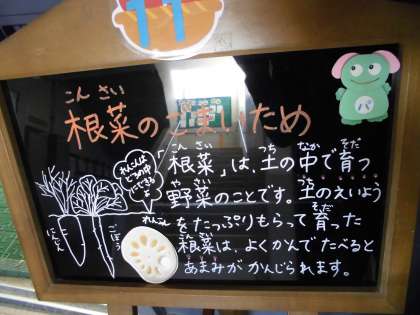 11
こんさい
根菜のごまいため
れんこんは
どろの中
にできる
よ
「根菜」は、土の中で育つ
こんさい つち なか そだ
野菜のことです。土のえいよう
やさい つち
をたっぷりもらって育った
そだ
根菜は、よくかんでたべると
こんさい
あまみがかんじられます。
にんじん
ごぼう
れんこん